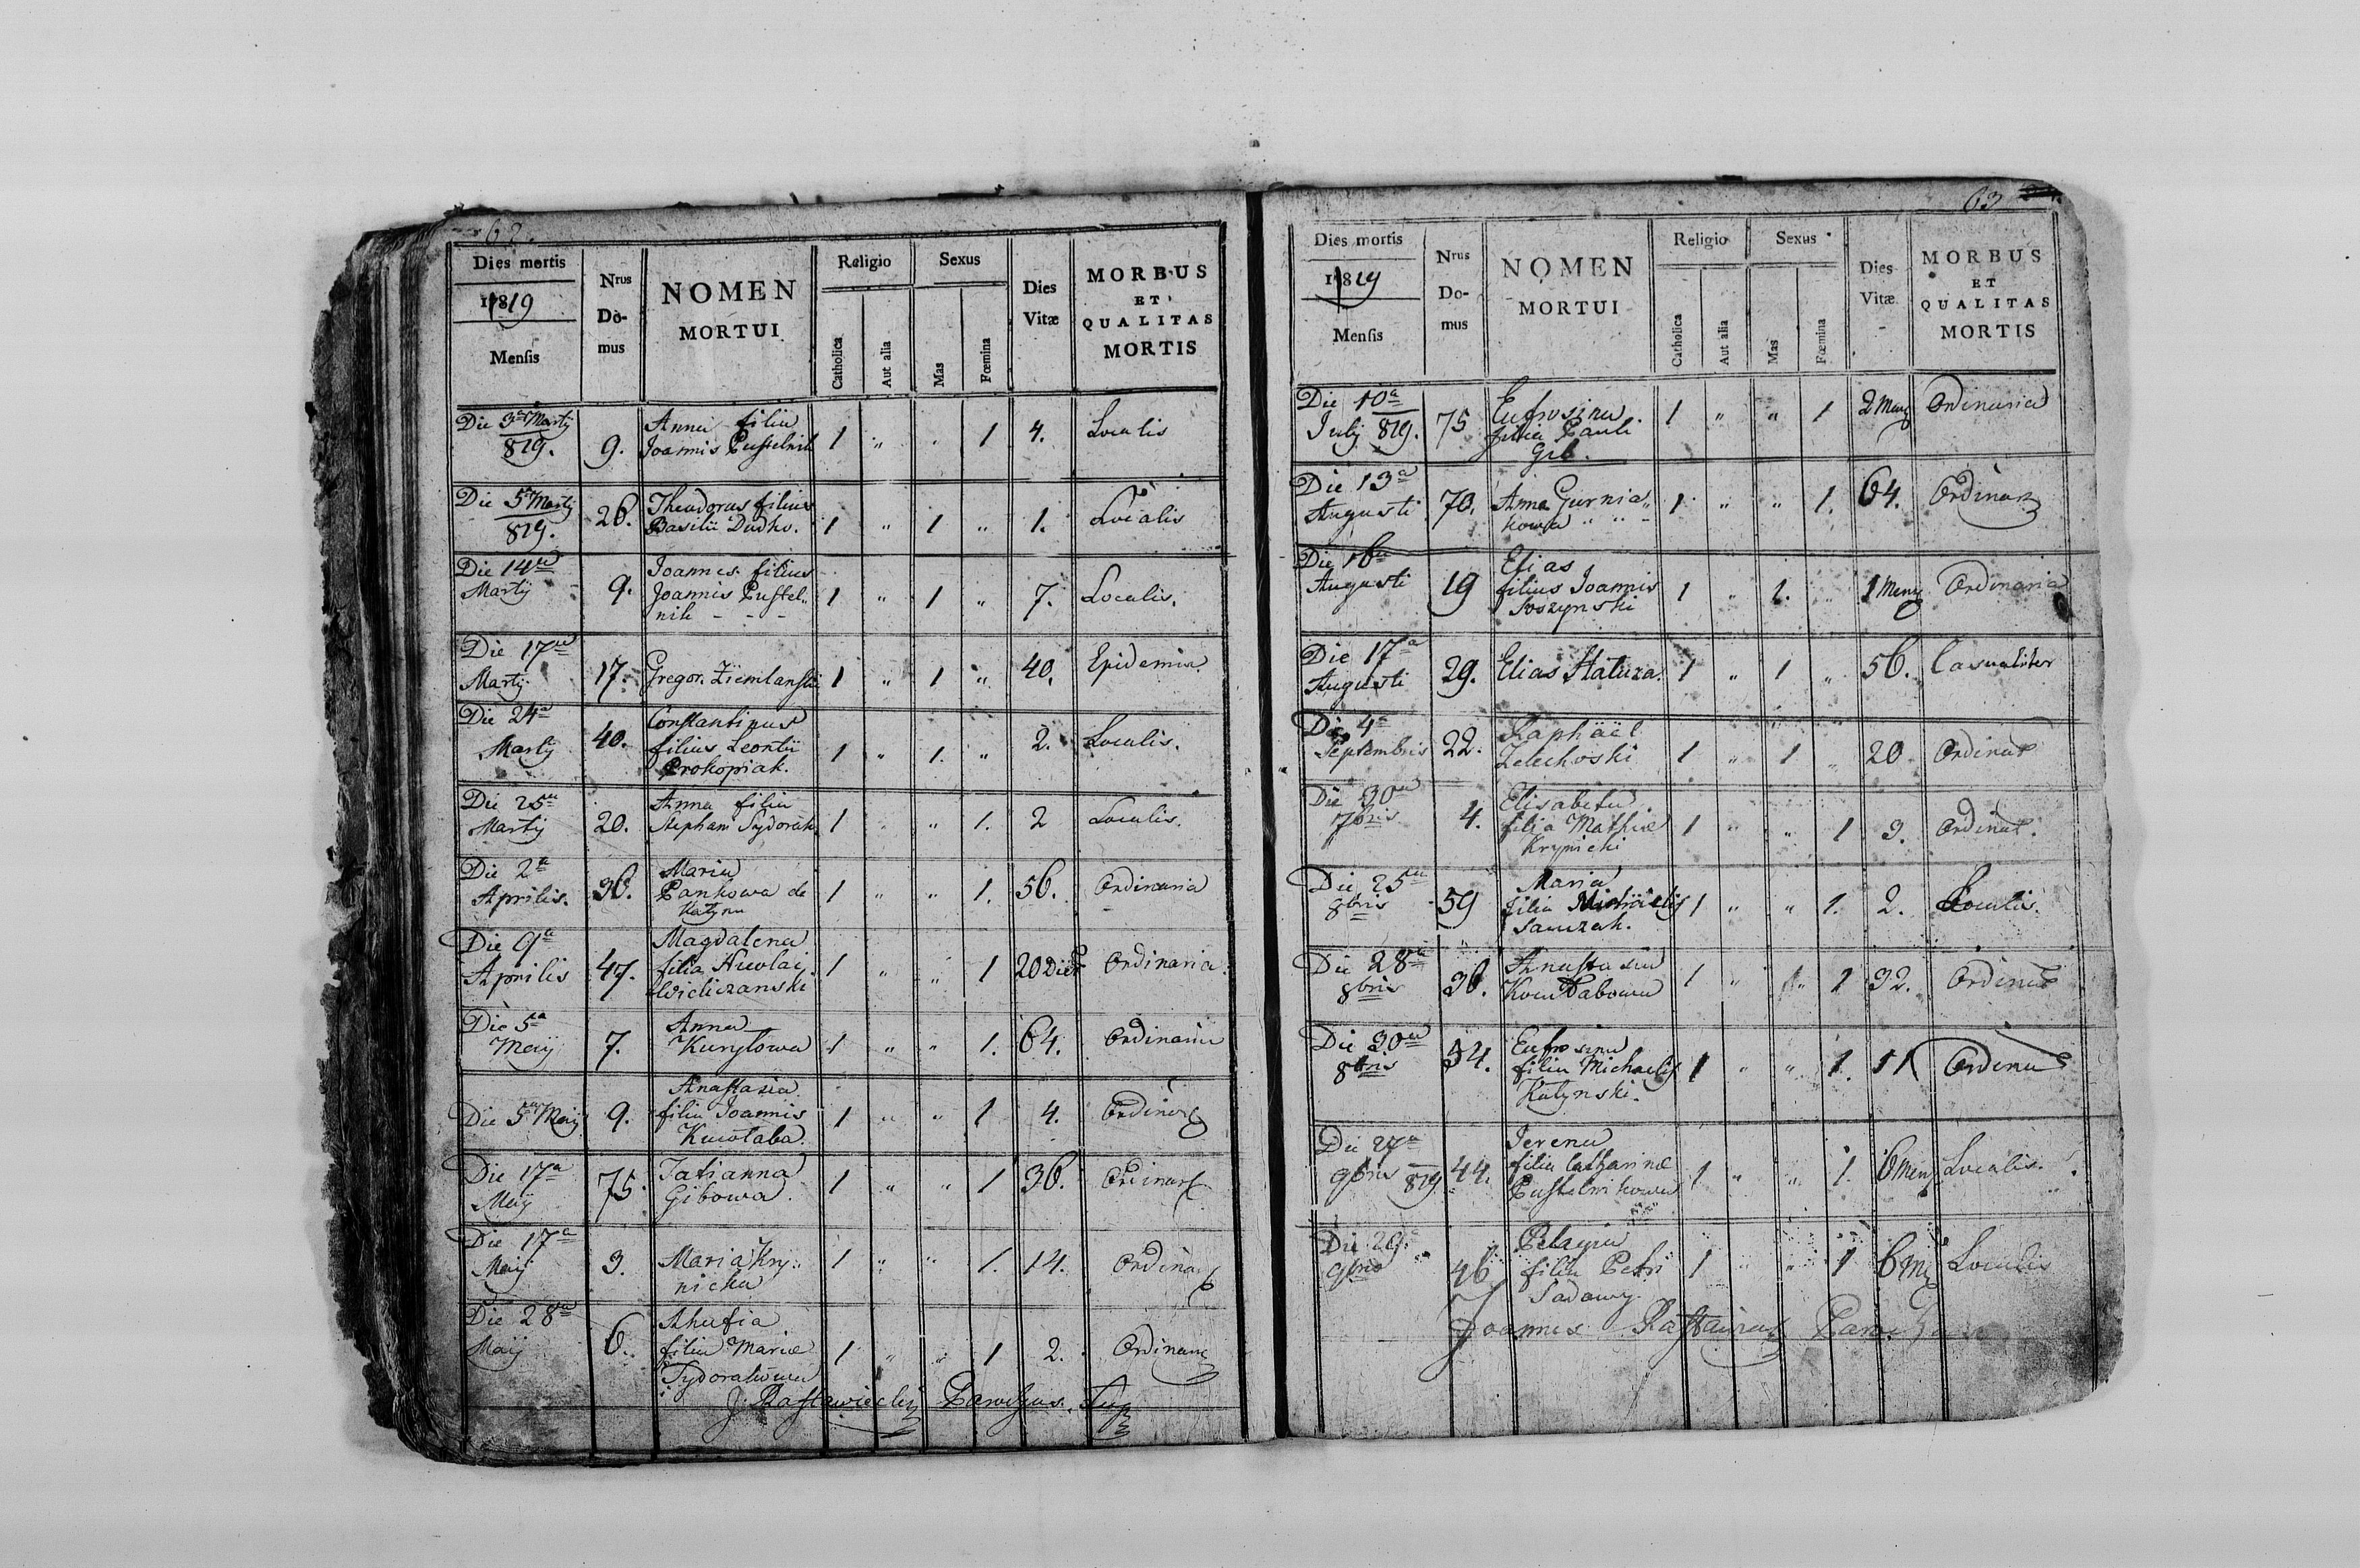 62.
Dies mortis
1819
Mensis
Nrus
Do-
mus
NOMEN
MORTUI
Religio
Catholica
Aut alia
Sexus
Mas
Fœmina
Dies
Vitæ
MORBUS
ET
QUALITAS
MORTIS
Die 3a Martij
819.
9.
Anna filia
Joannis Pustelnik
1 " " 1 4. Localis
Die 5a Martij
819.
26.
Theodorus filius
Basilii Dudko.
1 " 1 " 1. Localis
Die 14ta
Martij
9.
Joannes filius
Joannis Pustel„
nik - - -
1 " 1 " 7. Localis.
Die 17ma
Martij
17.
Gregor. Ziemlanski
1 " 1 " 40. Epidemia.
Die 24a
Martij
40.
Constantinus
filius Leontii
Prokopiak.
1 " 1. " 2. Localis.
Die 25ta
Martij
20.
Anna filia
Stephani Sydorak.
1 " " 1. 2 Localis.
Die 2a
Aprilis.
36.
Maria
Pankowa de
Katyna
1 " " 1. 56. Ordinaria
Die 9a
Aprilis
47.
Magdalena
filia Nicolai
1 " " 1 20 Ordinaria.
Die 5a
Maij
7.
Anna
Kurylowa
1 " " 1. 64. Ordinaria
Die 5ta Maij
9.
Anastazia
filia Joannis
1 " " 1 4.
Die 17a
Maij
75.
Tatianna
Gibowa.
1 " " 1 36.
Die 17a
Maij
3.
Maria Kry„
nicka
1 " " 1. 14. Ordina
Die 28va
Maij
6.
filia Mariæ
Sydorakowa
1 " " 1 2.
J. Rastawiecki Parochus.
63
Dies mortis
1819
Mensis
Nrus
Do-
mus
NOMEN
MORTUI
Religio
Catholica
Aut alia
Sexus
Mas
Fœmina
Dies
Vitæ
MORBUS
ET
QUALITAS
MORTIS
Die 10a
Julij 819.
75
Eufrosina
filia Pauli
Gib.
1 " " 1 2 Ordinaria
Die 13a
Augusti
70.
Anna Gurnia„
kowa " " -
1 " " 1. 64. Ordinar
Die 16ta
Augusti
19
Elias
filius Joannis
Soszynski
1 " 1. " 1 Ordinaria
Die 17a
Augusti
29.
Elias Hatuza.
1 " 1 " 56. Casualiter
Die 4a
Septembris
22.
Raphäel
Zelechoski
1 " 1 " 20 Ordinar
Die 30ma
7bris
4.
Elisabeta
filia Mathiæ
Krynicki
1 " " 1 3. Ordinar.
Die 25ta
8bris
59
Maria
filia Michäelis
Sawczak.
1 " " 1. 2. Localis.
Die 28a
8bris
36.
Anastasia
1 " " 1 32. Ordinar
Die 30ma
8bris
54.
Eufrosina
filia Michaelis
Katynski.
1 " " 1. 11 Ordinar
Die 27a
9bris 819
44.
Jerena
filia Catharinæ
Pustelnikowa
1 " " 1. 6 men Localis.
Die 29.
9bris
46
Pelagia
filia Petri
Sadowy.
1 " " 1 6 Localis
Joannes